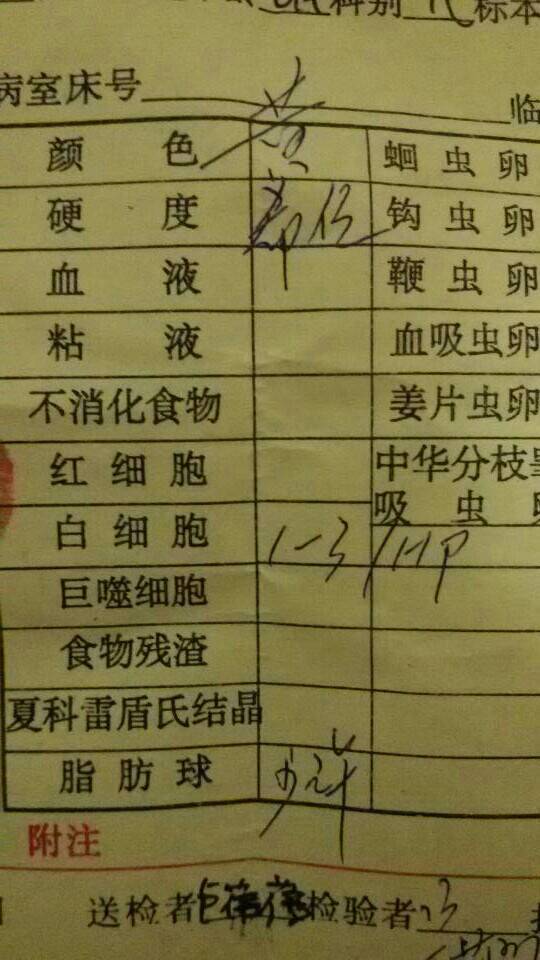 科别 标本
病室床号 临
颜色 黄 蛔虫卵
硬度 钩虫卵
血液 鞭虫卵
粘液 血吸虫卵
不消化食物 姜片虫卵
红细胞 中华分枝睾
吸虫卵
白细胞 1-3/HP
巨噬细胞
食物残渣
夏科雷盾氏结晶
脂肪球 少许
附注
送检者 检验者